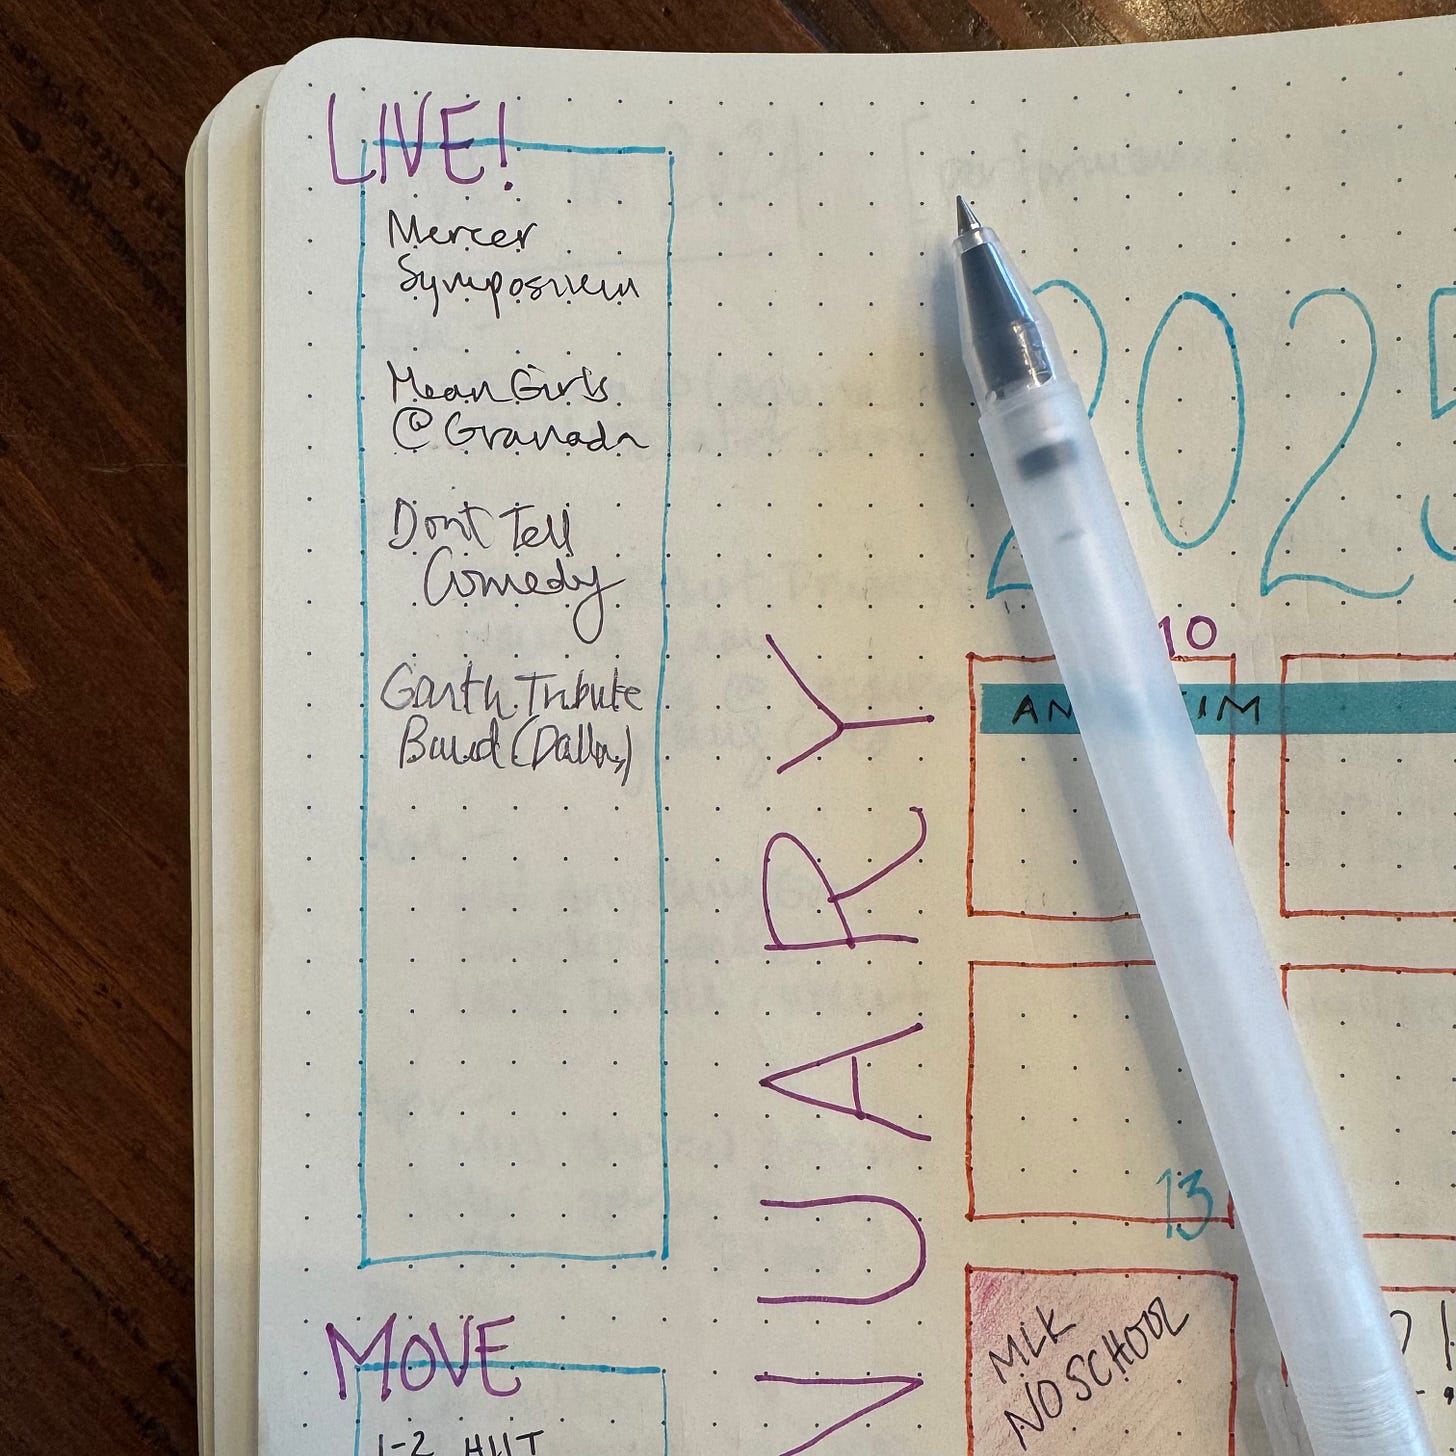 LIVE!
Mercer
Symposium
Mean Girls
@ Granada
Dont Tell
Comedy
Garth Tribute
Band (Dallas)
MOVE
1-2 HIIT
2025
NUARY
10
13
MLK
NO SCHOOL